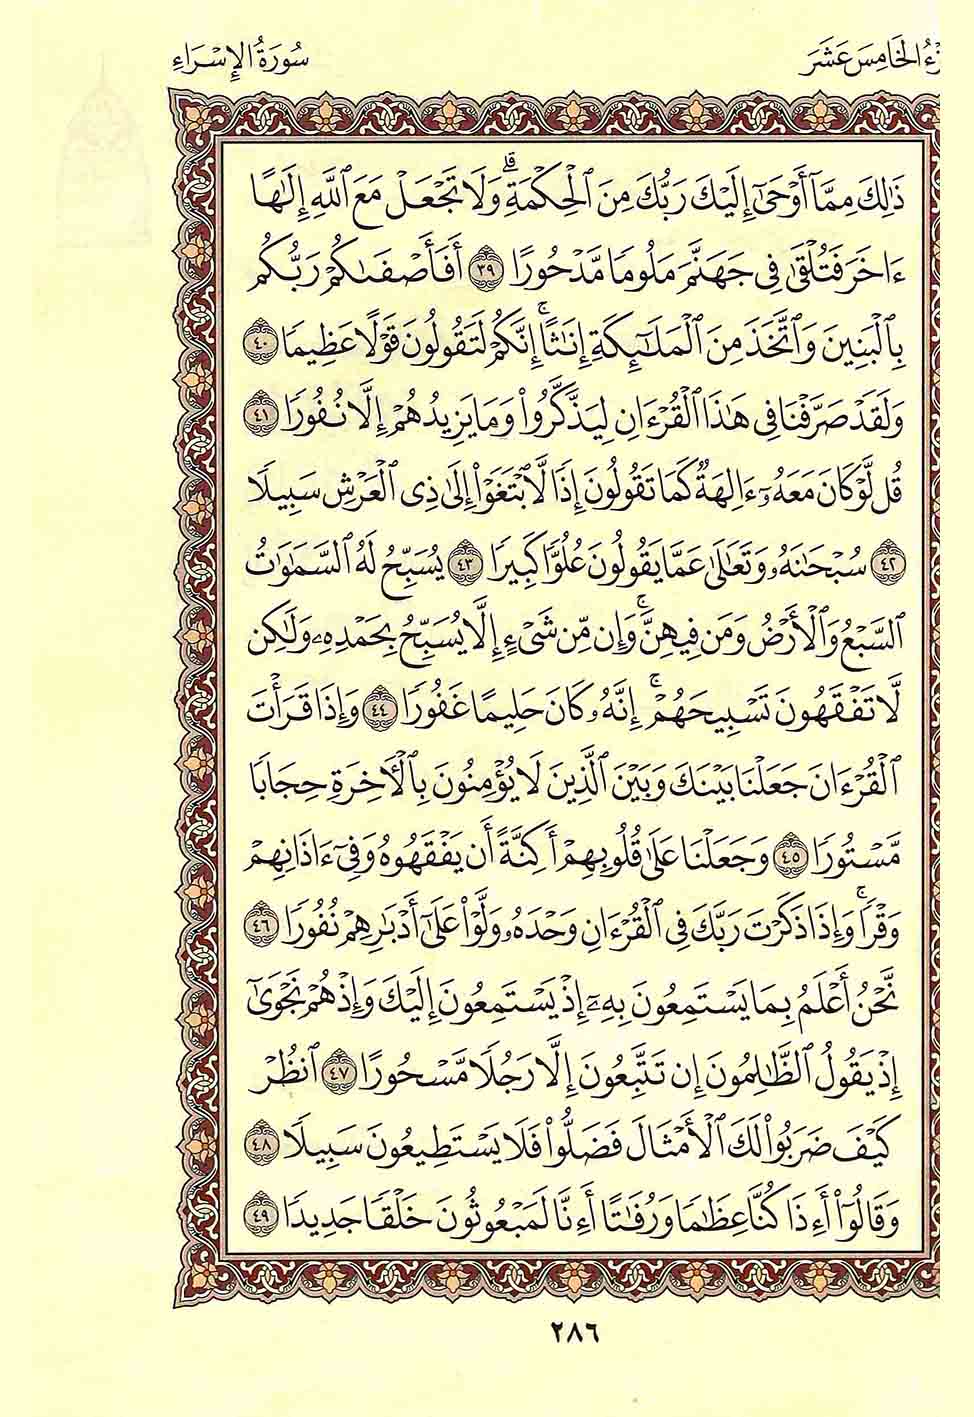 سُورَةُ الإِسْرَاءِ
الخَامِسَ عَشَرَ
ذَٰلِكَ مِمَّآ أَوْحَىٰٓ إِلَيْكَ رَبُّكَ مِنَ ٱلْحِكْمَةِ ۗ وَلَا تَجْعَلْ مَعَ ٱللَّهِ إِلَٰهًا
ءَاخَرَ فَتُلْقَىٰ فِى جَهَنَّمَ مَلُومًا مَّدْحُورًا ٣٩ أَفَأَصْفَىٰكُمْ رَبُّكُم
بِٱلْبَنِينَ وَٱتَّخَذَ مِنَ ٱلْمَلَٰٓئِكَةِ إِنَٰثًا ۚ إِنَّكُمْ لَتَقُولُونَ قَوْلًا عَظِيمًا ٤٠
وَلَقَدْ صَرَّفْنَا فِى هَٰذَا ٱلْقُرْءَانِ لِيَذَّكَّرُوا۟ وَمَا يَزِيدُهُمْ إِلَّا نُفُورًا ٤١
قُل لَّوْ كَانَ مَعَهُۥٓ ءَالِهَةٌ كَمَا تَقُولُونَ إِذًا لَّٱبْتَغَوْا۟ إِلَىٰ ذِى ٱلْعَرْشِ سَبِيلًا
٤٢ سُبْحَٰنَهُۥ وَتَعَٰلَىٰ عَمَّا يَقُولُونَ عُلُوًّا كَبِيرًا ٤٣ يُسَبِّحُ لَهُ ٱلسَّمَٰوَٰتُ
ٱلسَّبْعُ وَٱلْأَرْضُ وَمَن فِيهِنَّ ۚ وَإِن مِّن شَىْءٍ إِلَّا يُسَبِّحُ بِحَمْدِهِۦ وَلَٰكِن
لَّا تَفْقَهُونَ تَسْبِيحَهُمْ ۚ إِنَّهُۥ كَانَ حَلِيمًا غَفُورًا ٤٤ وَإِذَا قَرَأْتَ
ٱلْقُرْءَانَ جَعَلْنَا بَيْنَكَ وَبَيْنَ ٱلَّذِينَ لَا يُؤْمِنُونَ بِٱلْءَاخِرَةِ حِجَابًا
مَّسْتُورًا ٤٥ وَجَعَلْنَا عَلَىٰ قُلُوبِهِمْ أَكِنَّةً أَن يَفْقَهُوهُ وَفِىٓ ءَاذَانِهِمْ
وَقْرًا ۚ وَإِذَا ذَكَرْتَ رَبَّكَ فِى ٱلْقُرْءَانِ وَحْدَهُۥ وَلَّوْا۟ عَلَىٰٓ أَدْبَٰرِهِمْ نُفُورًا ٤٦
نَّحْنُ أَعْلَمُ بِمَا يَسْتَمِعُونَ بِهِۦٓ إِذْ يَسْتَمِعُونَ إِلَيْكَ وَإِذْ هُمْ نَجْوَىٰٓ
إِذْ يَقُولُ ٱلظَّٰلِمُونَ إِن تَتَّبِعُونَ إِلَّا رَجُلًا مَّسْحُورًا ٤٧ ٱنظُرْ
كَيْفَ ضَرَبُوا۟ لَكَ ٱلْأَمْثَالَ فَضَلُّوا۟ فَلَا يَسْتَطِيعُونَ سَبِيلًا ٤٨
وَقَالُوٓا۟ أَءِذَا كُنَّا عِظَٰمًا وَرُفَٰتًا أَءِنَّا لَمَبْعُوثُونَ خَلْقًا جَدِيدًا ٤٩
٢٨٦